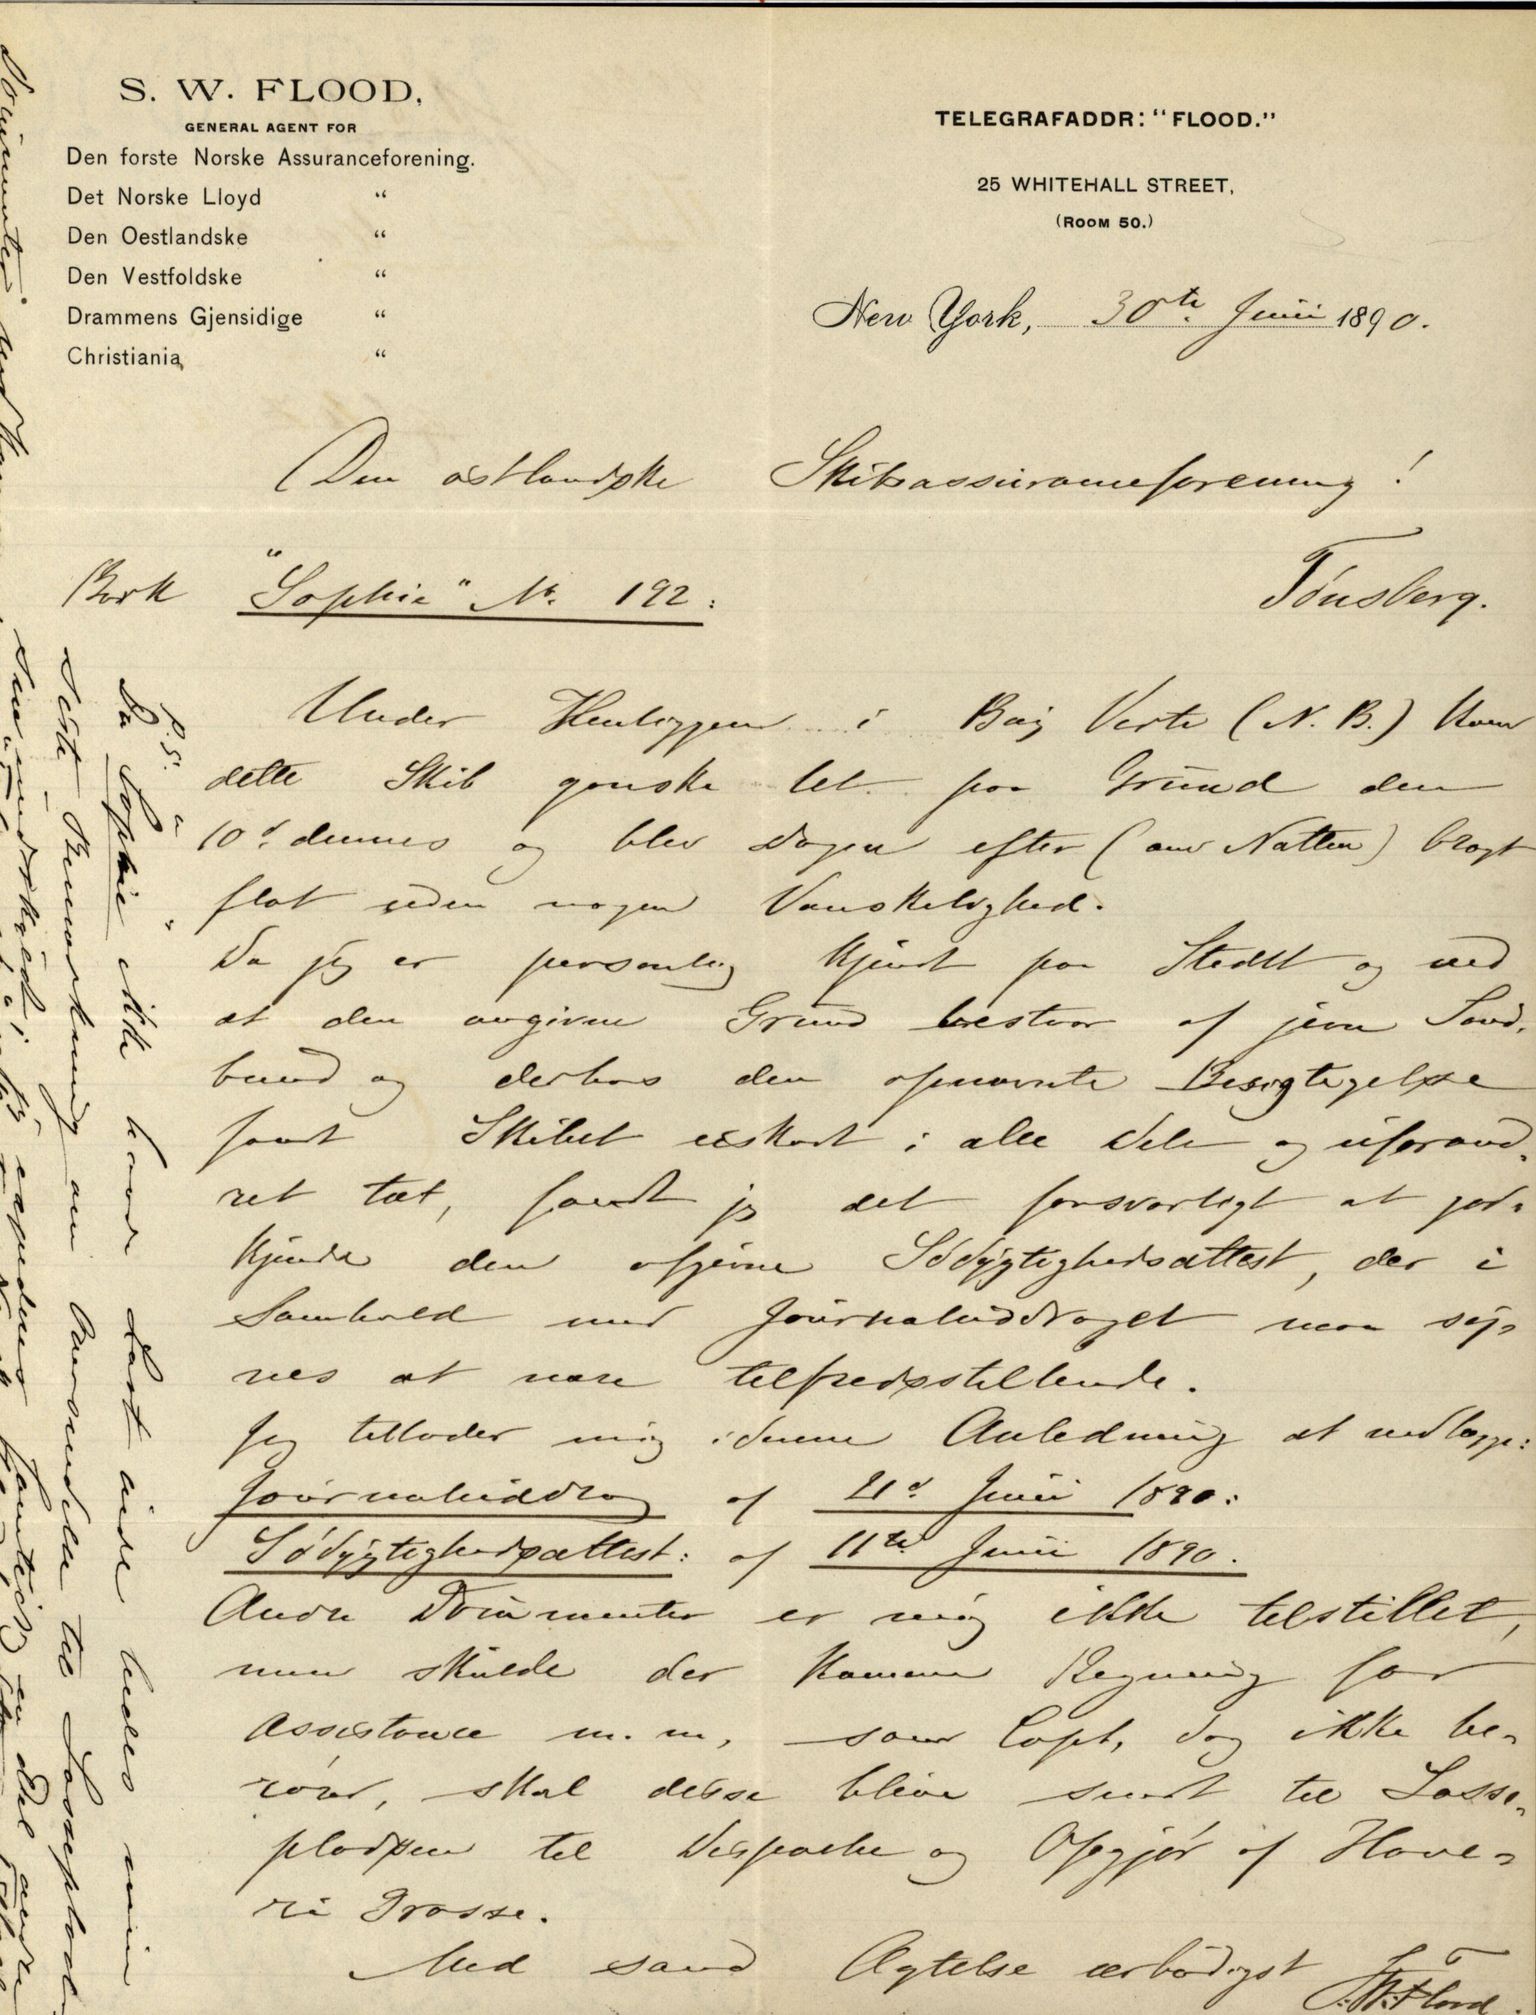 S. W. FLOOD,
GENERAL AGENT FOR
Den forste Norske Assuranceforening.
Det Norske Lloyd "
Den Oestlandske "
Den Vestfoldske "
Drammens Gjensidige "
Christiania "
TELEGRAFADDR: "FLOOD."
25 WHITEHALL STREET,
(ROOM 50.)
New York, 30te Juni 1890.
Den østlandske Skibsassuranceforening!
Tönsberg.
Bark "Sophie" No. 192:
Under Henliggen i Baij Verte (N. B.) kom
dette Skib ganske let paa Grund den
10d. dennes og blev Dagen efter (om Natten) bragt
flot uden nogen Vanskelighed.
Da jeg er personlig kjendt paa Stedet og ved
at den angivne Grund bestaar af jevn Sand-
bund og derhos den opnævnte Besigtigelse
fandt Skibet uskadt i alle Dele og uforand-
ret tæt, fandt jeg det forsvarligt at god-
kjende den afgivne Sødygtighedsattest, der i
Samhold med Journaluddraget maa sy-
nes at være tilfredsstillende.
Jeg tillader mig i denne Anledning at vedlægge:
Journaluddrag af 21d. Juni 1890:
Sødygtighedsattest: af 11te Juni 1890.
Andre Documenter er mig ikke tilstillet,
men skulde der komme Regning for
Assistance m. m., som Capt. dog ikke be-
rører, skal disse blive sendt til Losse-
pladsen til Dispache og Opgjør af Have-
ri Grosse.
Med sand Agtelse ærbødigst
S. W. Flood.
P. S.
Da "Sophie" ikke havde Last inde lades min
sidste Bemærkning om Anvendelse til Lossepladsen